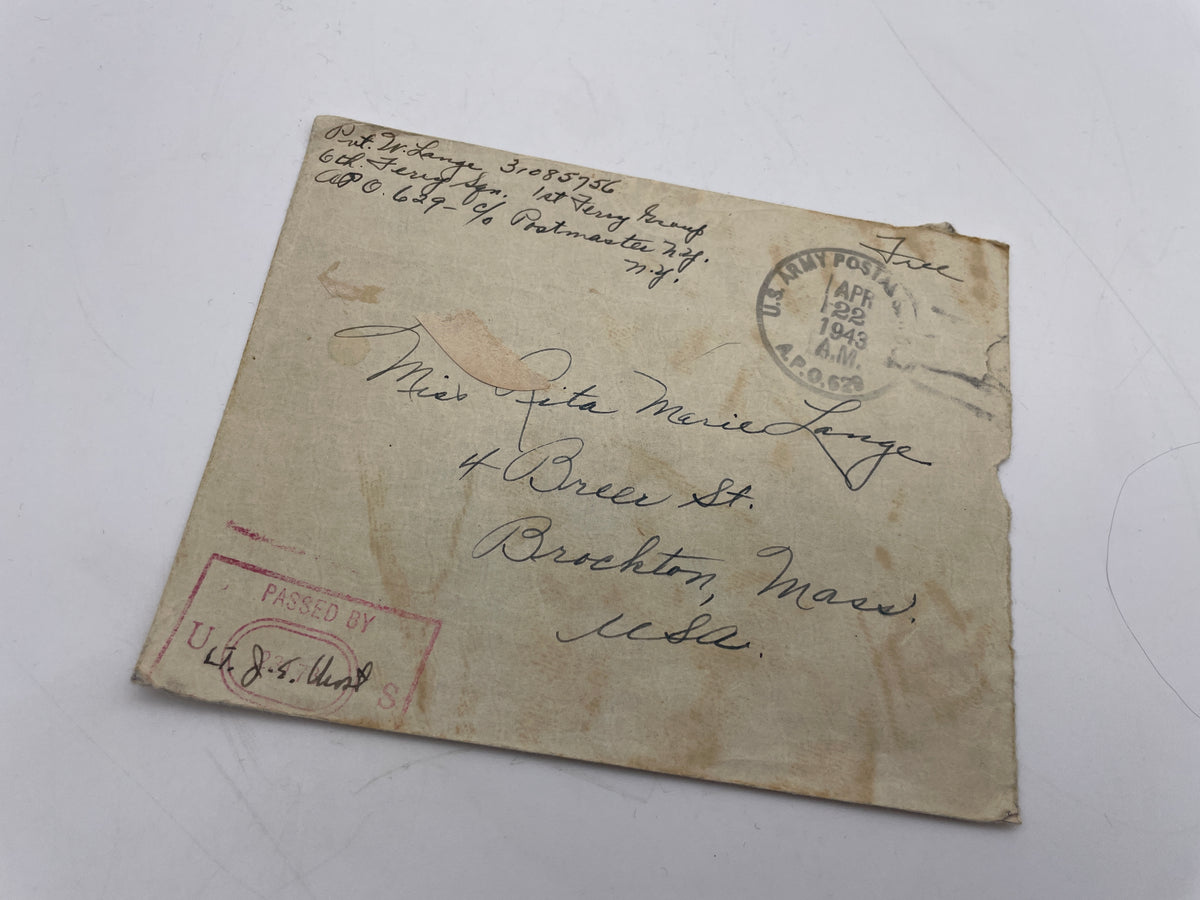 Pvt. W. Lange 31085756
6th. Ferry Sqn. 1st Ferry Group
A.P.O. 629 - c/o Postmaster N.Y.
N.Y.
Free
U.S. ARMY POSTAL
APR
22
1943
A.M.
A.P.O. 629
Miss Rita Marie Lange
4 Breer St.
Brockton, Mass.
USA.
PASSED BY
U S
Lt. J. E.